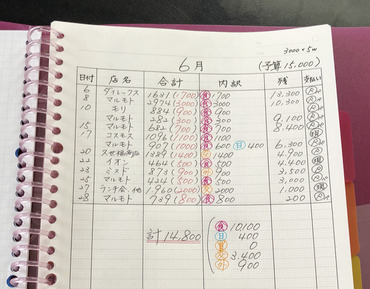 3000×5w
6月 (予算 15,000)
日付 店名 合計 内訳 残 支払い
6 ダイレックス 1631 (1700) 食 1700 13,300
8 マルモト 2974 (3000) 食 3000 10,300
10 モリ 884 (900) 食 900
マルモト 282 (300) 食 300 9,100
15 マルモト 682 (700) 食 700 8,400
17 コスモス 1096 (1100) 1100 現
マルモト 907 (1000) 食 600 日 400 6,300
20 1389 (1400) 1400 4,900
22 イオン 464 (500) 食 500 4,400 現
23 ミスド 873 (900) 外 900 3,500
25 マルモト 424 (500) 食 500 3,000
27 ランチ会、他 1960 (2000) 2000 1,000 現
28 マルモト 739 (800) 食 800 200
計 14,800
食 10,100
日 400
0
3,400
外 900